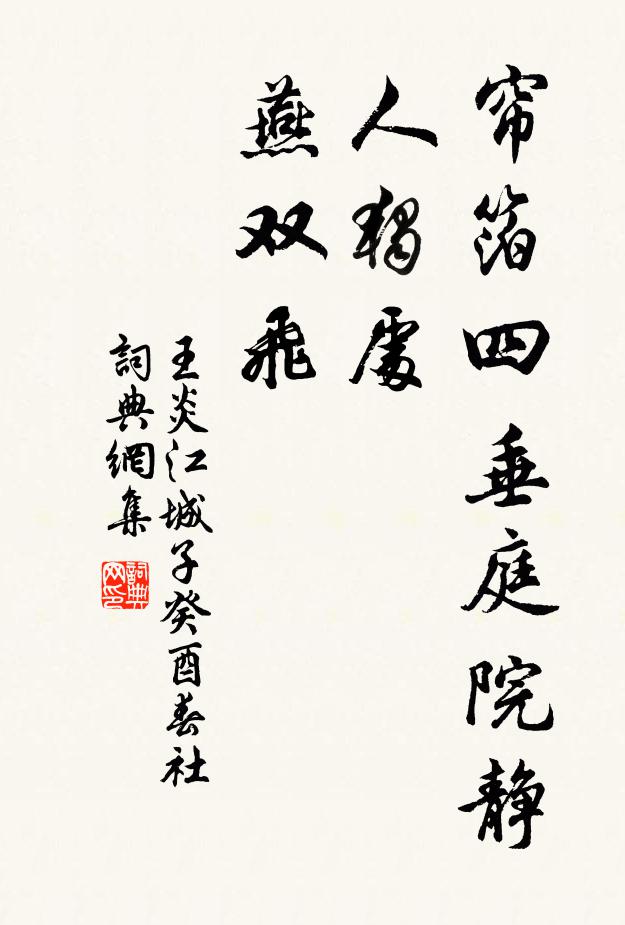 帘箔四垂庭院静
人獨處
燕双飛
王炎江城子癸酉春社
詞典網集
詞典网印